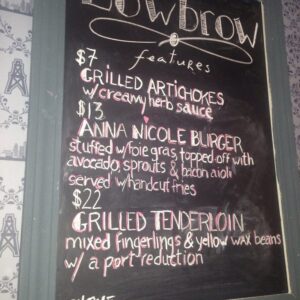 Lowbrow
features
$7
GRILLED ARTICHOKES
w/ creamy herb sauce
$13
ANNA NICOLE BURGER
stuffed w/foie gras, topped off with
avocado, sprouts & bacon aioli
served w/handcut fries
$22
GRILLED TENDERLOIN
mixed fingerlings & yellow wax beans
w/ a port reduction